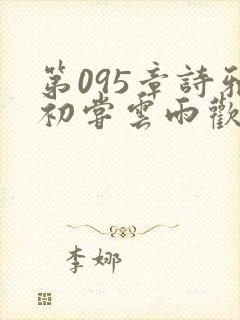 第095章詩雅
初嘗雲雨歡
李娜